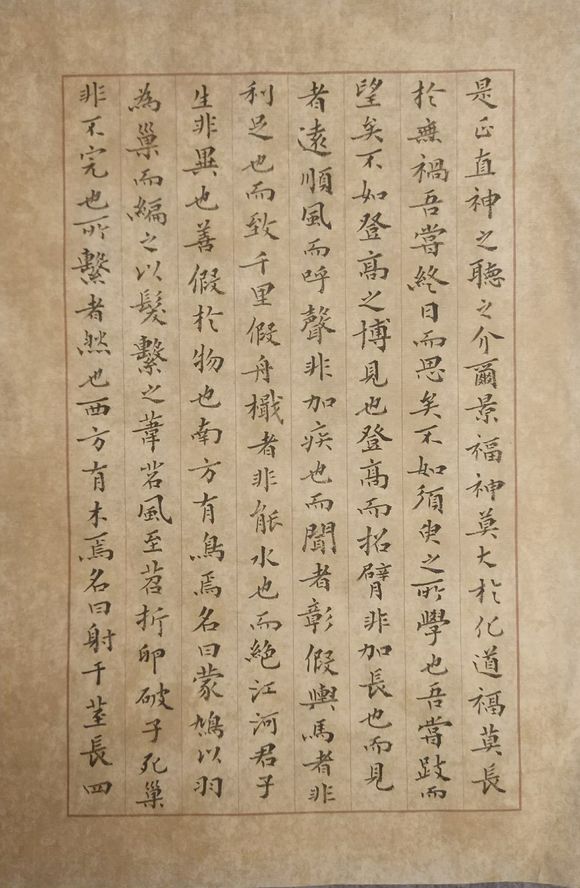 是正直神之聽之介爾景福神莫大於化道福莫長
於無禍吾嘗終日而思矣不如須臾之所學也吾嘗跂而
望矣不如登高之博見也登高而招臂非加長也而見
者遠順風而呼聲非加疾也而聞者彰假輿馬者非
利足也而致千里假舟檝者非能水也而絕江河君子
生非異也善假於物也南方有鳥焉名曰蒙鳩以羽
為巢而編之以髮繫之葦苕風至苕折卵破子死巢
非不完也所繫者然也西方有木焉名曰射干莖長四